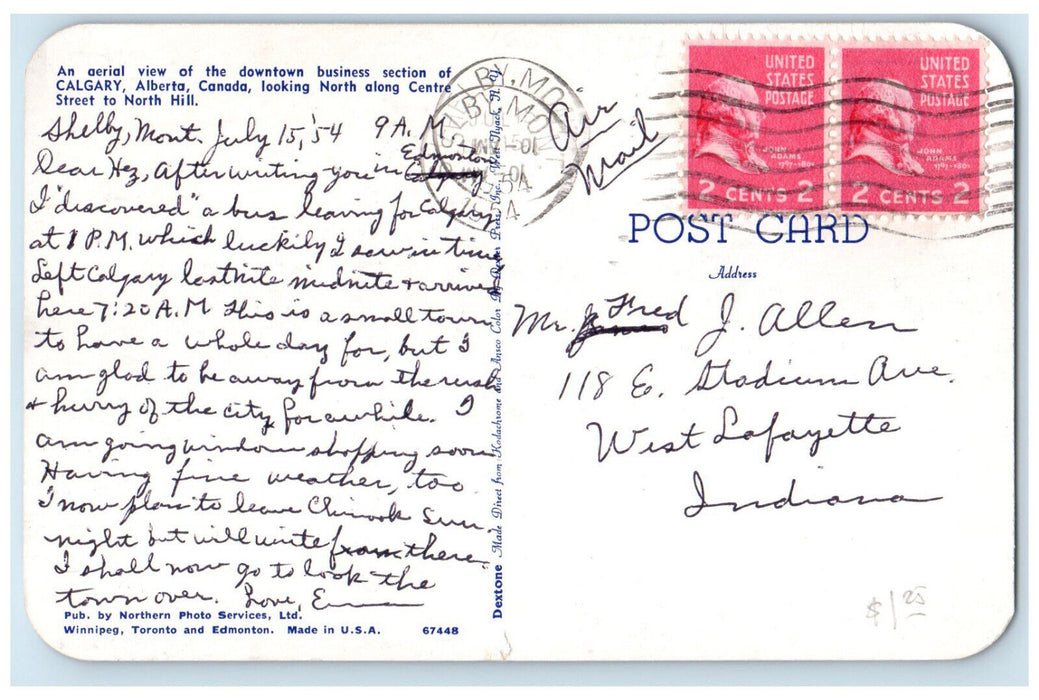 An aerial view of the downtown business section of
CALGARY, Alberta, Canada, looking North along Centre
Street to North Hill.
Shelby, Mont. July 15, '54 9 A.M
Dear Hez, After writing you in Edmonton
I "discovered" a bus leaving for Calgary
at 1 P.M. which luckily I saw in time
Left Calgary lastnite midnite & arrived
here 7:20 A.M This is a small town
to have a whole day for, but I
am glad to be away from the rush
& hurry of the city for awhile. I
am going window shopping soon.
Having fine weather, too
I now plan to leave Chinook Sun.
night but will write from there.
I shall now go to look the
town over. Love, Emma
Pub. by Northern Photo Services, Ltd.
Winnipeg, Toronto and Edmonton. Made in U.S.A. 67448
Dextone Made Direct from Kodachrome and Ansco Color By Dexter Press, Inc., West Nyack, N. Y.
SHELBY, MONT.
Air
Mail
UNITED
STATES
POSTAGE
JOHN
ADAMS
2 CENTS 2
UNITED
STATES
POSTAGE
JOHN
ADAMS
2 CENTS 2
POST CARD
Address
Mr. Fred J. Allen
118 E. Stadium Ave.
West Lafayette
Indiana
$1 25